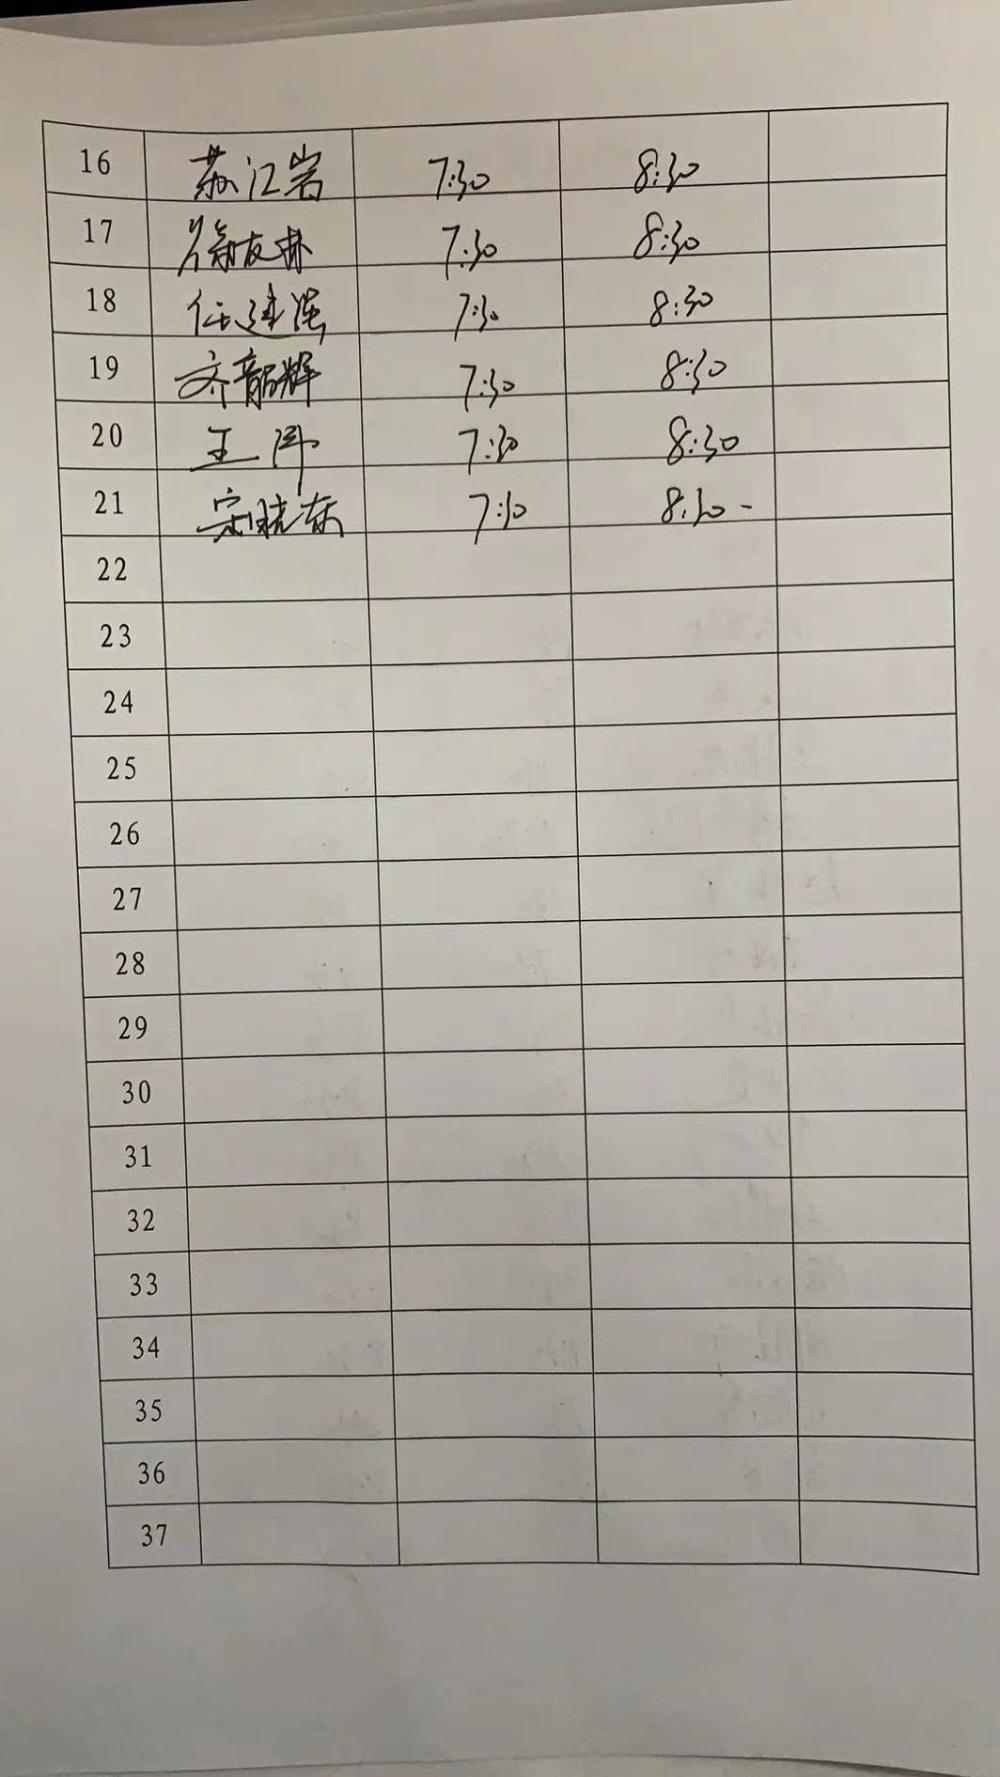 16 苏江岩 7:30 8:30
17 徐友林 7:30 8:30
18 任建强 7:30 8:30
19 齐韶辉 7:30 8:30
20 王伟 7:30 8:30
21 宋晓东 7:30 8:30
22
23
24
25
26
27
28
29
30
31
32
33
34
35
36
37